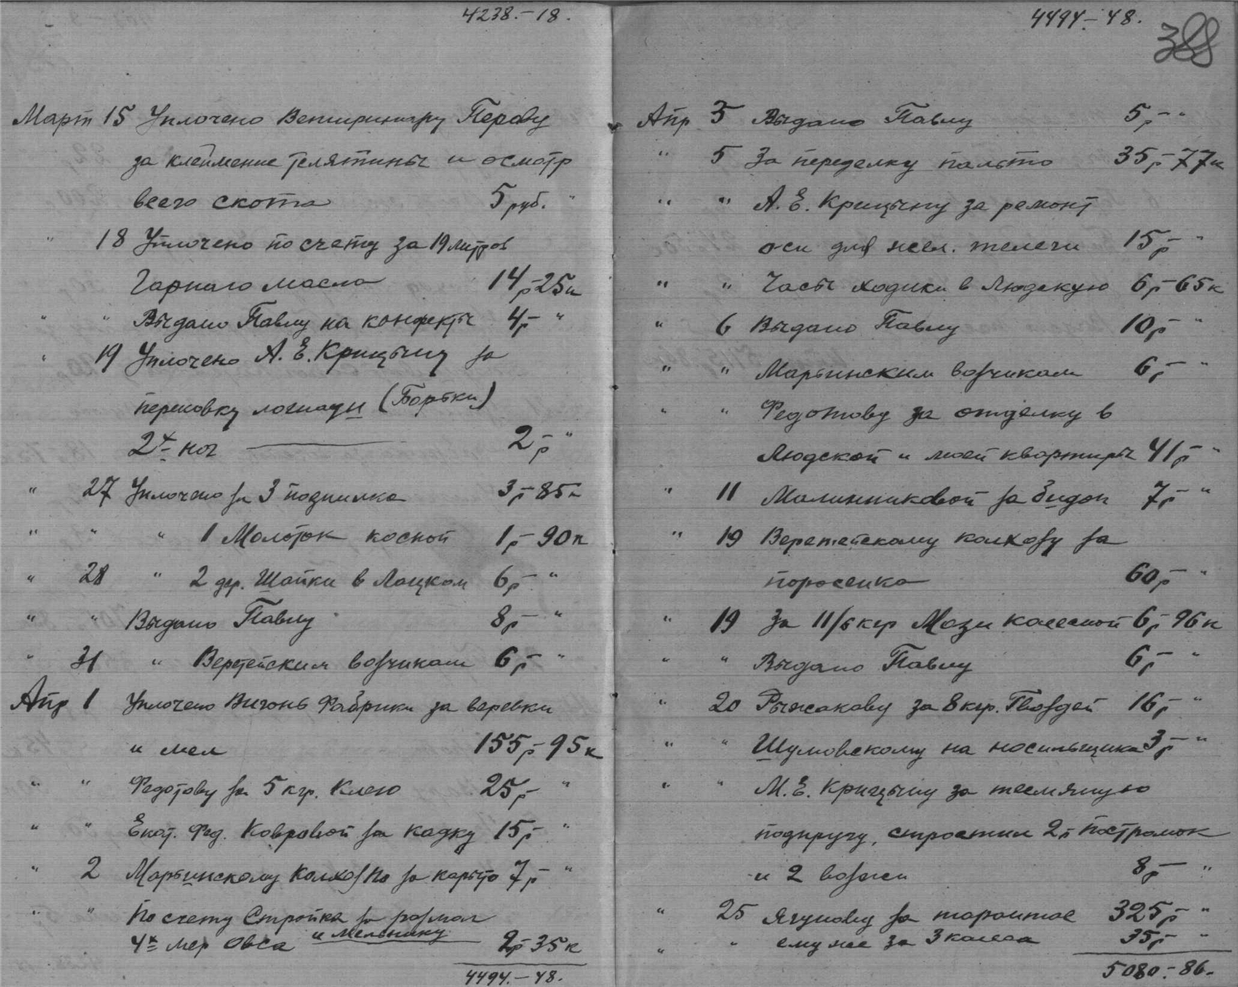 4238.-18.
Март 15 Уплочено Ветиринару Перову
за клеймение телятины и осмотр
всего скота 5 руб. "
" 18 Уплочено по счету за 19 литров
Гарнаго масла 14 р-25 к
" " Выдано Павлу на конфекты 4 р- "
" 19 Уплочено А. Е. Крицыну за
перековку лошади (Бортки)
2х ног 2 р- "
" 27 Уплочено за 3 подпилка 3 р-85 к
" " " 1 Молоток косной 1 р-90 к
" 28 " 2 дер. Шайки в Лоцком 6 р- "
" " Выдано Павлу 8 р- "
" 31 " Веретейским возчикам 6 р- "
Апр 1 Уплочено Вигонь Фабрики за веревки
и мел 155 р-95 к
" " Федотову за 5 кгр. Клею 25 р- "
" " Екат. Фед. Ковровой за кадку 15 р- "
" 2 Мартинскому Колхозу за карыто 7 р- "
" " По счету Стройка за размол
4х мер Овса и мельнику 2 р-35 к
4494.-48.
4494.-48.
388
Апр 3 Выдано Павлу 5 р- "
" 5 За переделку пальто 35 р-77 к
" " А. Е. Крицыну за ремонт
оси для жел. телеги 15 р- "
" " Часы ходики в Людскую 6 р-65 к
" 6 Выдано Павлу 10 р- "
" " Мартинским возчикам 6 р- "
" " Федотову за отделку в
Людской и моей квартиры 41 р- "
" 11 Малинниковой за бидон 7 р- "
" 19 Веретейскому колхозу за
поросенка 60 р- "
" 19 За 11/6 кгр Мази колесной 6 р-96 к
" " Выдано Павлу 6 р- "
" 20 Рыжакову за 8 кгр. Гвоздей 16 р- "
" " Шумовскому на носильщика 3 р- "
" " М. Е. Крицыну за тесмяную
подпругу, сростил 2е постромок
и 2 возжи 8 р- "
" 25 Ягунову за тарантас 325 р- "
" " ему же за 3 колеса 35 р- "
5080.-86.